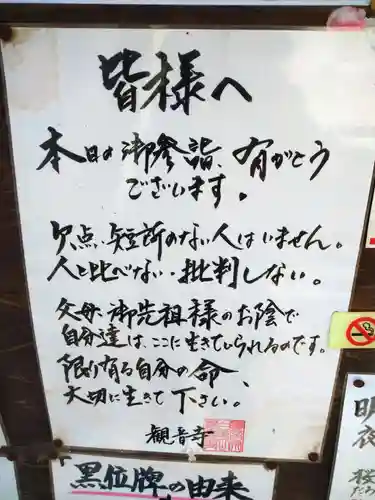 皆様へ
本日の御参詣、有がとう
ございます。
欠点、短所のない人はいません。
人と比べない・批判しない。
父母、御先祖様のお陰で
自分達は、ここに生きていられるのです。
限り有る自分の命、
大切に生きて下さい。
観音寺
黒位牌の由来
明
夜